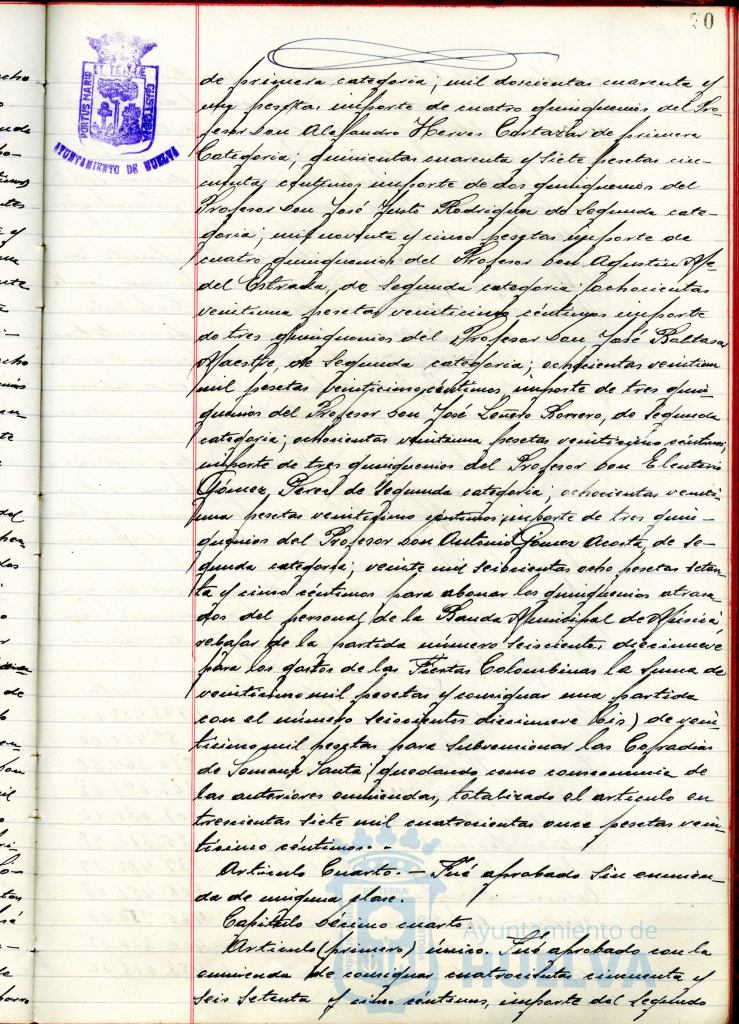 70
PORTUS MARIS ET TERRÆ CUSTODIA
AYUNTAMIENTO DE HUELVA
de primera categoria; mil doscientas cuarenta y
una pesetas importe de cuatro quinquenios del Pro-
fesor Don Alejandro Hervas Cortazar de primera
Categoria; quinientas cuarenta y siete pesetas cin-
cuenta céntimos importe de dos quinquenios del
Profesor Don José Justo Rodriguez de Segunda cate-
goria; mil noventa y cinco pesetas importe de
cuatro quinquenios del Profesor Don Agustin
del Estrada, de Segunda categoria; ochocientas
veintiuna pesetas veinticinco céntimos importe
de tres quinquenios del Profesor Don José Baltasar
Maestre, de Segunda categoria; ochocientas veintiun
mil pesetas veinticinco céntimos, importe de tres quin-
quenios del Profesor Don José Romero, de Segunda
categoria; ochocientas veintiuna pesetas veinticinco céntimos,
importe de tres quinquenios del Profesor Don Eleuterio
Gómez Perez de Segunda categoria; ochocientas veinti-
una pesetas veinticinco céntimos importe de tres quin-
quenios del Profesor Don Antonio Gómez Acosta, de Se-
gunda categoria; veinte mil seiscientas ocho pesetas seten-
ta y cinco céntimos para abonar los quinquenios atrasa-
dos del personal de la Banda Municipal de Música
rebajar de la partida número seiscientos diecinueve
para los gastos de las Fiestas Colombinas la suma de
veinticinco mil pesetas y consignar una partida
con el número seiscientos diecinueve (bis) de vein-
ticinco mil pesetas para subvencionar las Cofradias
de Semana Santa; quedando como consecuencia de
las anteriores enmiendas, totalizado el articulo en
trescientas siete mil cuatrocientas once pesetas vein-
ticinco céntimos.-
Articulo Cuarto.- Fué aprobado sin enmien-
da de ninguna clase.
Capitulo decimo cuarto
Articulo (primero) único. Fué aprobado con la
enmienda de consignar cuatrocientas cincuenta y
seis setenta y cinco céntimos, importe del Segundo
Ayuntamiento de
HUELVA